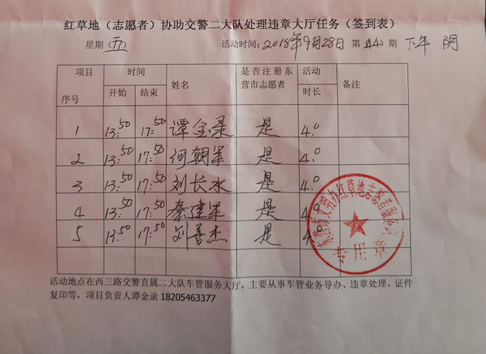 红草地（志愿者）协助交警二大队处理违章大厅任务（签到表）
星期 五 活动时间：2018年9月28日 第44期 下午 阴
项目 时间 姓名 是否注册东营市志愿者 活动时长 备注
序号 开始 结束
1 13:50 17:50 谭金录 是 4.0
2 13:50 17:50 何朝军 是 4.0
3 13:50 17:50 刘长水 是 4.0
4 13:50 17:50 秦建军 是 4.0
5 13:50 17:50 刘善杰 是 4.0
专用章
活动地点在西三路交警直属二大队车管服务大厅，主要从事车管业务导办、违章处理、证件
复印等，项目负责人谭金录 18205463377